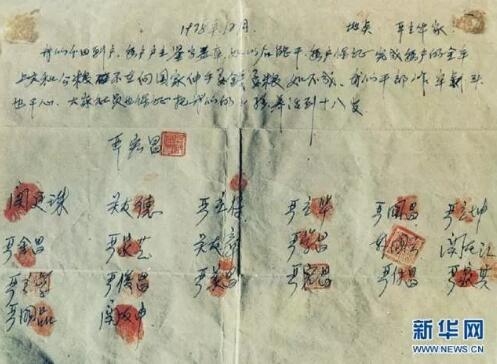 1978年12月 地点 严立华家
我们分田到户,每户户主签字盖章,如以后能干,每户保证完成每户的全年
上交和公粮 不在向国家伸手要钱要粮 如不成,我们干部作牢 头
也干心,大家社员也保证把我们的小孩养活到十八岁
严宏昌
关廷珠 关友德 严立符 严立华 严国昌 严立坤
严金昌 严家芝 关友章 严学昌 韩国云 关友江
严立学 严俊昌 严美昌 严宏昌 严付昌 严家其
严国品 关友申
新华网
WWW.NEWS.CN